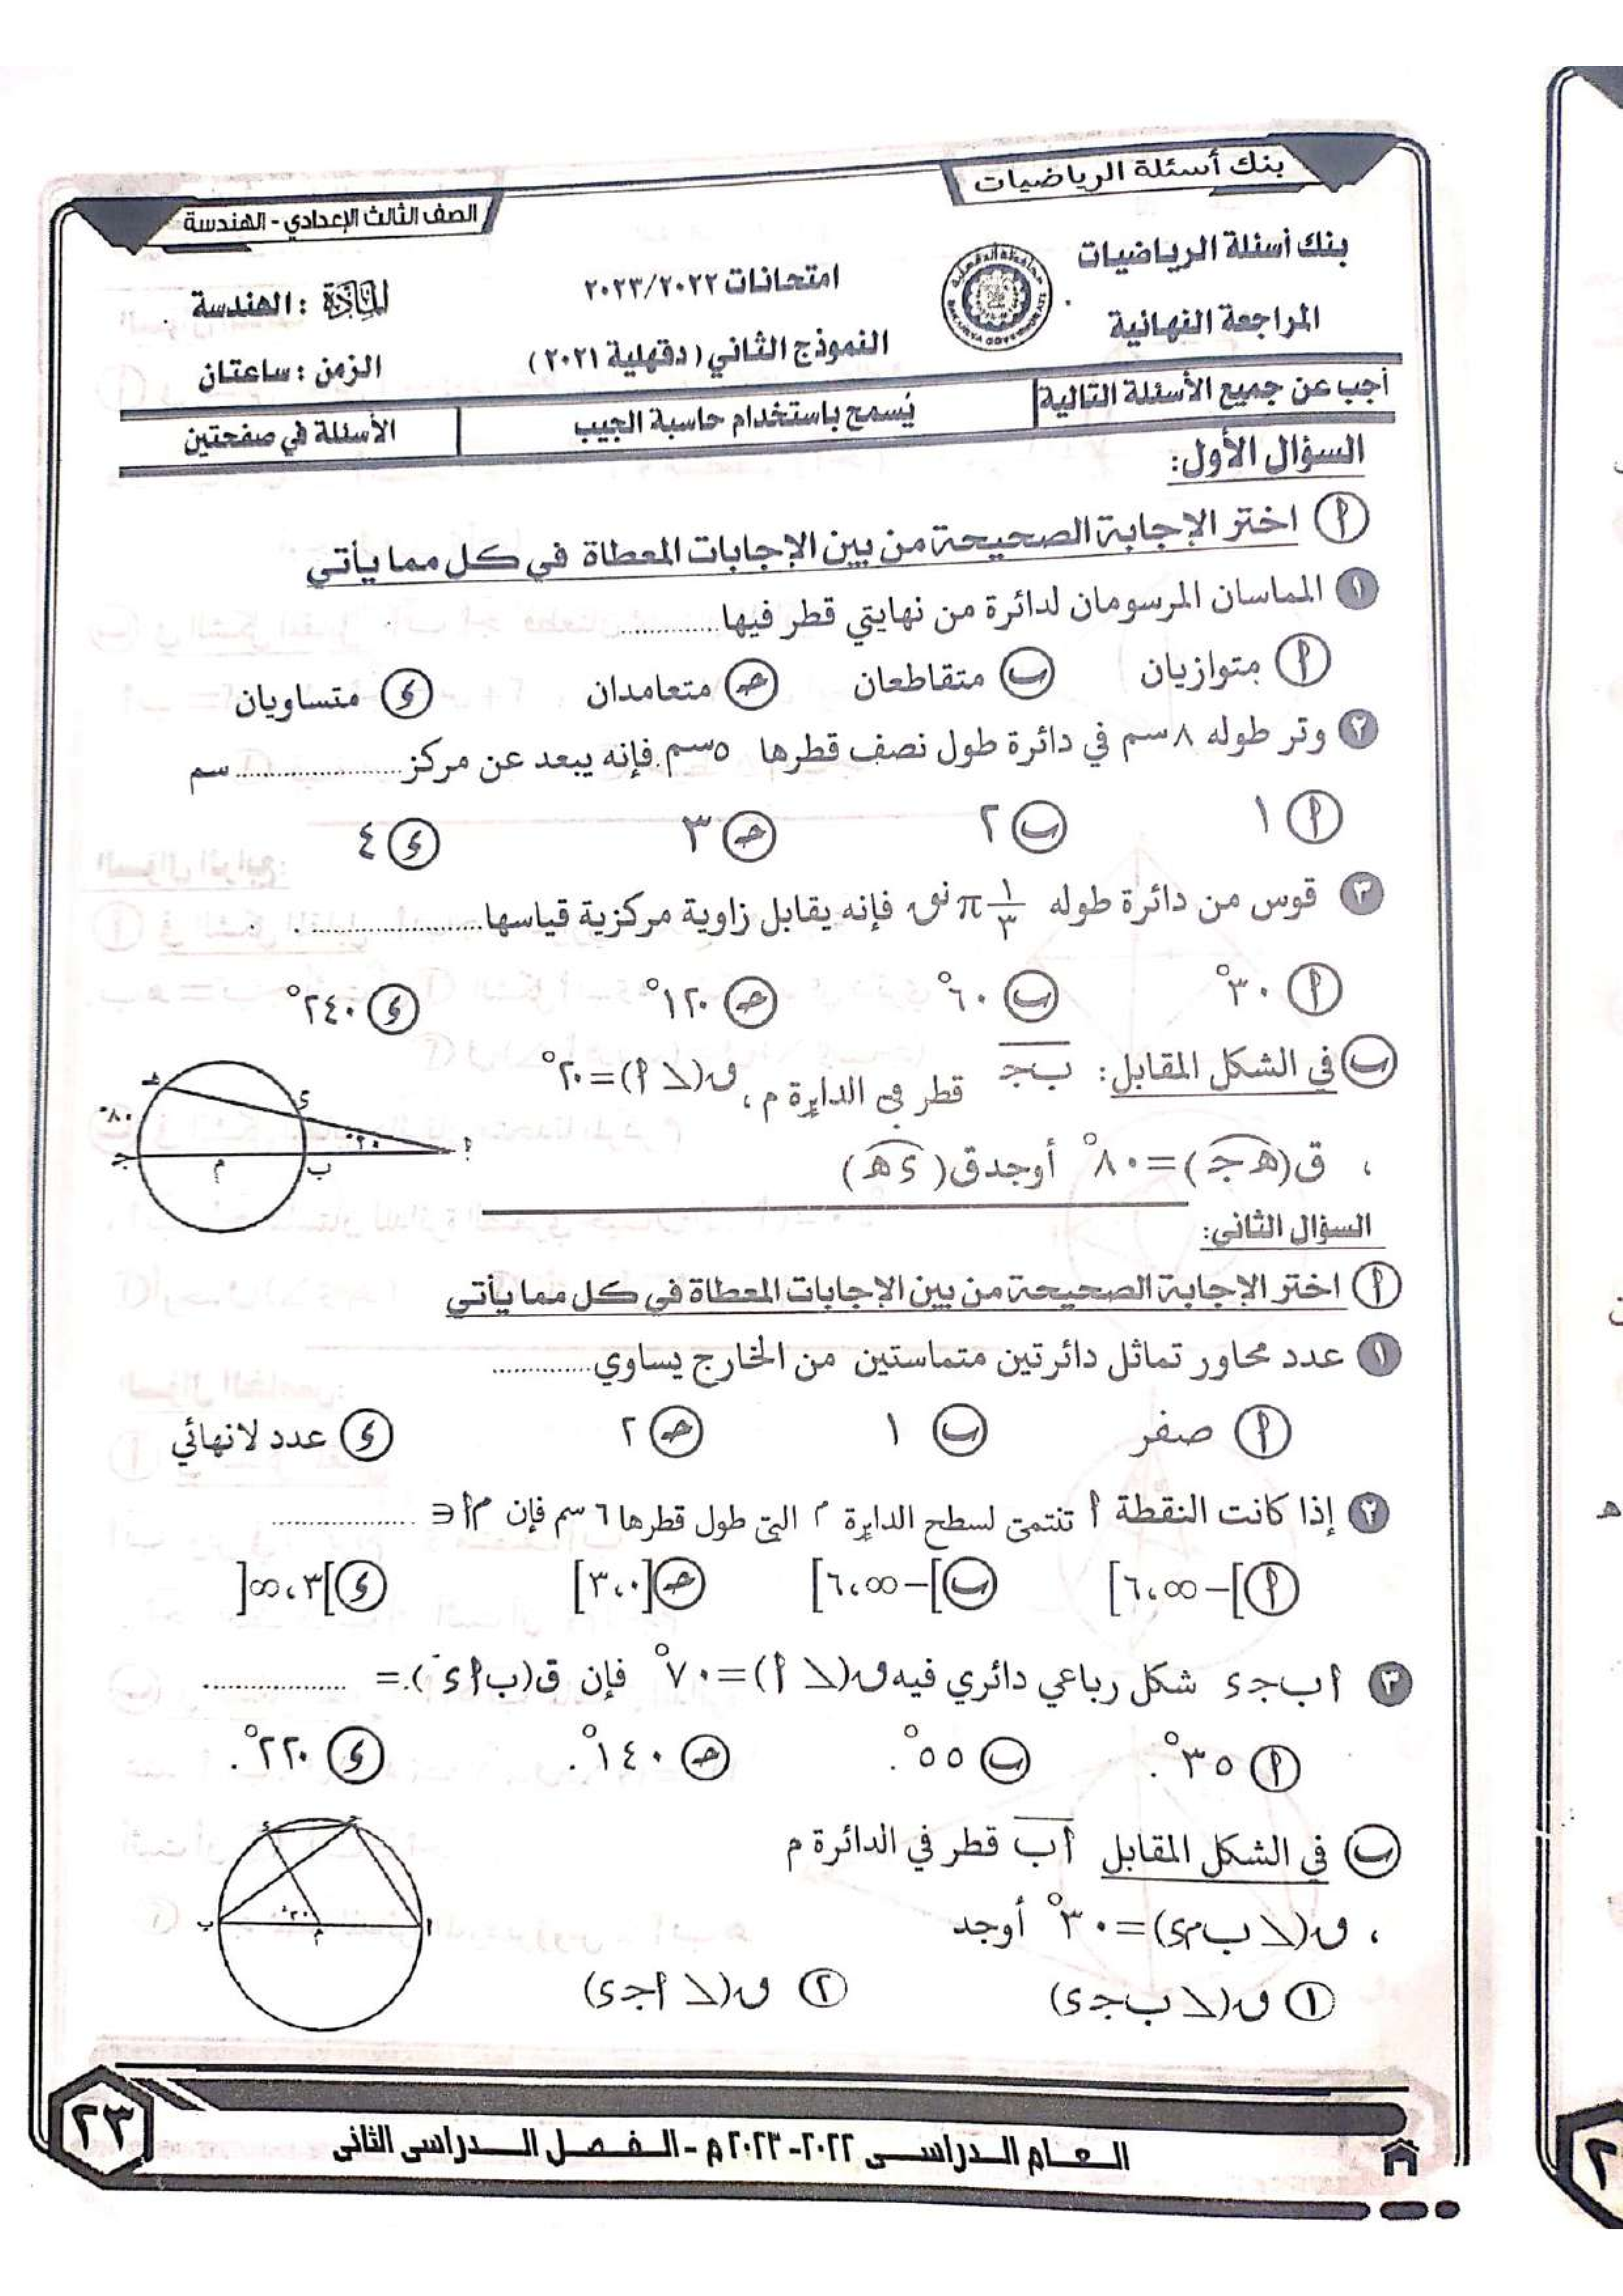 بنك أسئلة الرياضيات
الصف الثالث الإعدادي - الهندسة
بنك أسئلة الرياضيات
امتحانات ٢٠٢٢/٢٠٢٣
المادة : الهندسة
المراجعة النهائية
النموذج الثاني ( دقهلية ٢٠٢١ )
الزمن : ساعتان
أجب عن جميع الأسئلة التالية
يُسمح باستخدام حاسبة الجيب
الأسئلة في صفحتين
السؤال الأول:
أ اختر الإجابة الصحيحة من بين الإجابات المعطاة في كل مما يأتي
١ المماسان المرسومان لدائرة من نهايتي قطر فيها.............
أ متوازيان ب متقاطعان جـ متعامدان د متساويان
٢ وتر طوله ٨ سم في دائرة طول نصف قطرها ٥سم فإنه يبعد عن مركز.................... سم
أ ١ ب ٢ جـ ٣ د ٤
٣ قوس من دائرة طوله ١/٣ π نق فإنه يقابل زاوية مركزية قياسها....................
أ ٣٠° ب ٦٠° جـ ١٢٠° د ٢٤٠°
ب في الشكل المقابل: ب جـ قطر في الدايرة م ، ق(∠ أ)=٢٠°
، ق(هـ جـ)=٨٠° أوجد ق(د هـ)
هـ د ٨٠° ٢٠° أ جـ م ب
السؤال الثاني:
أ اختر الإجابة الصحيحة من بين الإجابات المعطاة في كل مما يأتي
١ عدد محاور تماثل دائرتين متماستين من الخارج يساوي.............
أ صفر ب ١ جـ ٢ د عدد لانهائي
٢ إذا كانت النقطة أ تنتمى لسطح الدايرة م التى طول قطرها ٦ سم فإن م أ ∈ .................
أ ]-∞،٦] ب ]-∞،٦] جـ [٠،٣] د ]٣،∞[
٣ أ ب جـ د شكل رباعي دائري فيه ق(∠ أ)=٧٠° فإن ق(ب أ د)=. .................
أ ٣٥°. ب ٥٥°. جـ ١٤٠°. د ٢٢٠°.
ب في الشكل المقابل أ ب قطر في الدائرة م
، ق(∠ ب م د)=٣٠° أوجد
١ ق(∠ ب جـ د) ٢ ق(∠ أ جـ د)
د جـ ب ٣٠° م أ
العام الدراسى ٢٠٢٢-٢٠٢٣م - الفصل الدراسى الثانى
٢٣